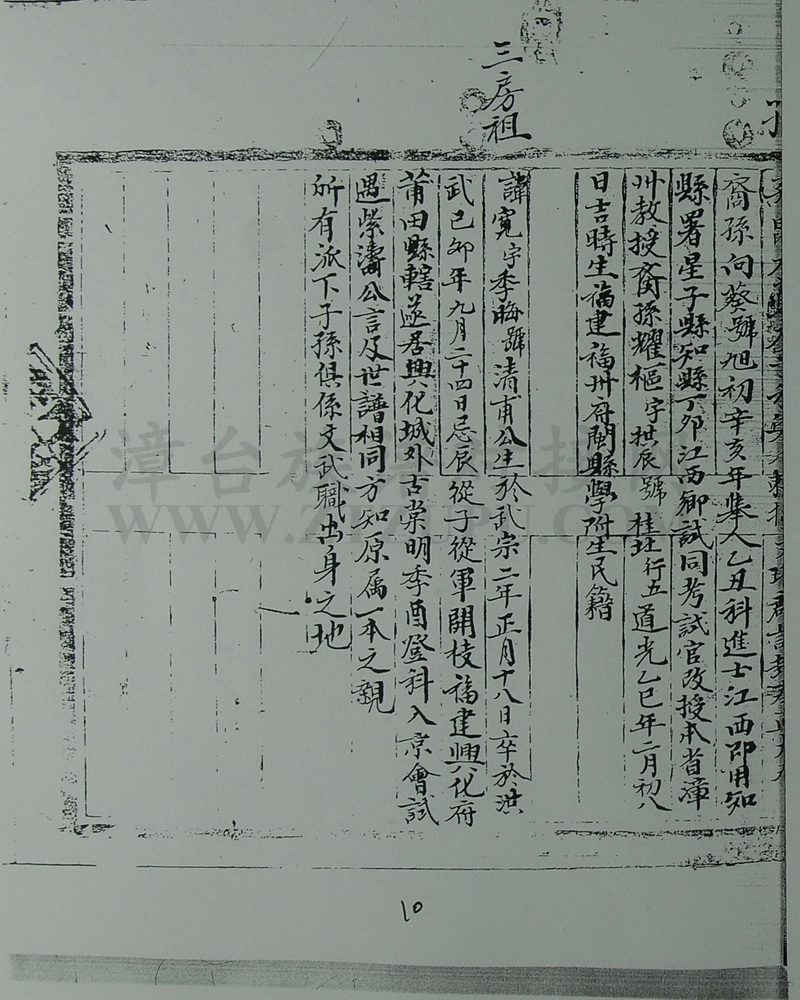 裔孫向葵號旭初辛亥年舉人乙丑科進士江西即用知
縣署星子縣知縣丁卯江西鄉試同考試官改授本省漳
州教授裔孫耀樞字拱辰號桂 行五道光乙巳年二月初八
日吉時生福建福州府閩縣學附生民籍
三房祖
諱寬字季晦號清甫公生於武宗二年正月十八日卒於洪
武己卯年九月二十四日忌辰從子從軍開枝福建興化府
莆田縣轄遂居興化城外古棠明季酉登科入京會試
遇紫濤公言及世譜相同方知原属一本之親
所有派下子孫俱係文武職出身之地
漳台族譜對接
10